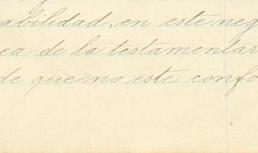 abilidad, en este neg
ea de la testamentar
de que no este confo